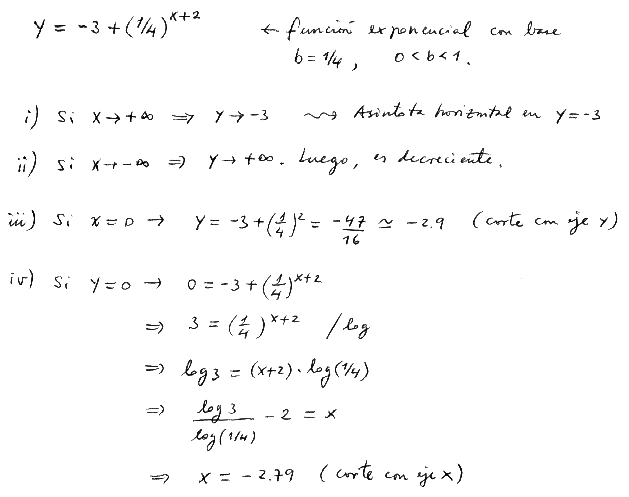 y = -3 + (1/4)^{x+2} ← función exponencial con base
b = 1/4, 0 < b < 1.
i) Si x → +∞ ⇒ y → -3 ⇝ Asíntota horizontal en y = -3
ii) Si x → -∞ ⇒ y → +∞. Luego, es decreciente.
iii) Si x = 0 → y = -3 + (1/4)^2 = -47/16 ≃ -2.9 (corte con eje y)
iv) Si y = 0 → 0 = -3 + (1/4)^{x+2}
⇒ 3 = (1/4)^{x+2} / log
⇒ log 3 = (x+2) · log(1/4)
⇒ log 3 / log(1/4) - 2 = x
⇒ x = -2.79 (corte con eje x)